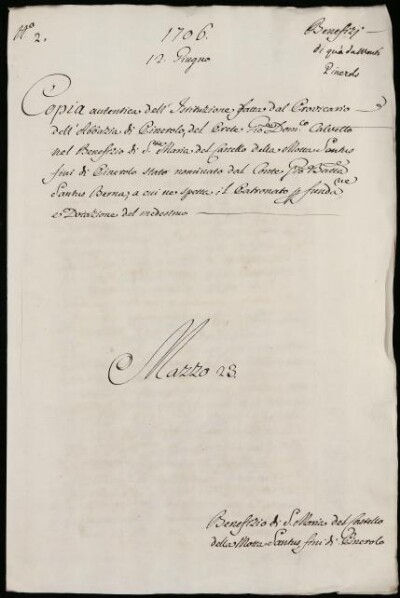 N.o 2.
1706.
12. Giugno
Benefizj
di quà da Monti
Pinerolo
Copia autentica dell'Istituzione fatta dal Provicario
dell'Abbazia di Pinerolo, del Prete Gio Dom.co Calvetto
nel Benefizio di S.ta Maria del Castello della Motta Santus
fini di Pinerolo stato nominato dal Conte Gio Batta
Santus Berna, a cui ne spetta il Patronato p fonda.ne
e Dotazione del medesimo
Mazzo 23.
Benefizio di S. Maria del Castello
della Motta Santus, fini di Pinerolo